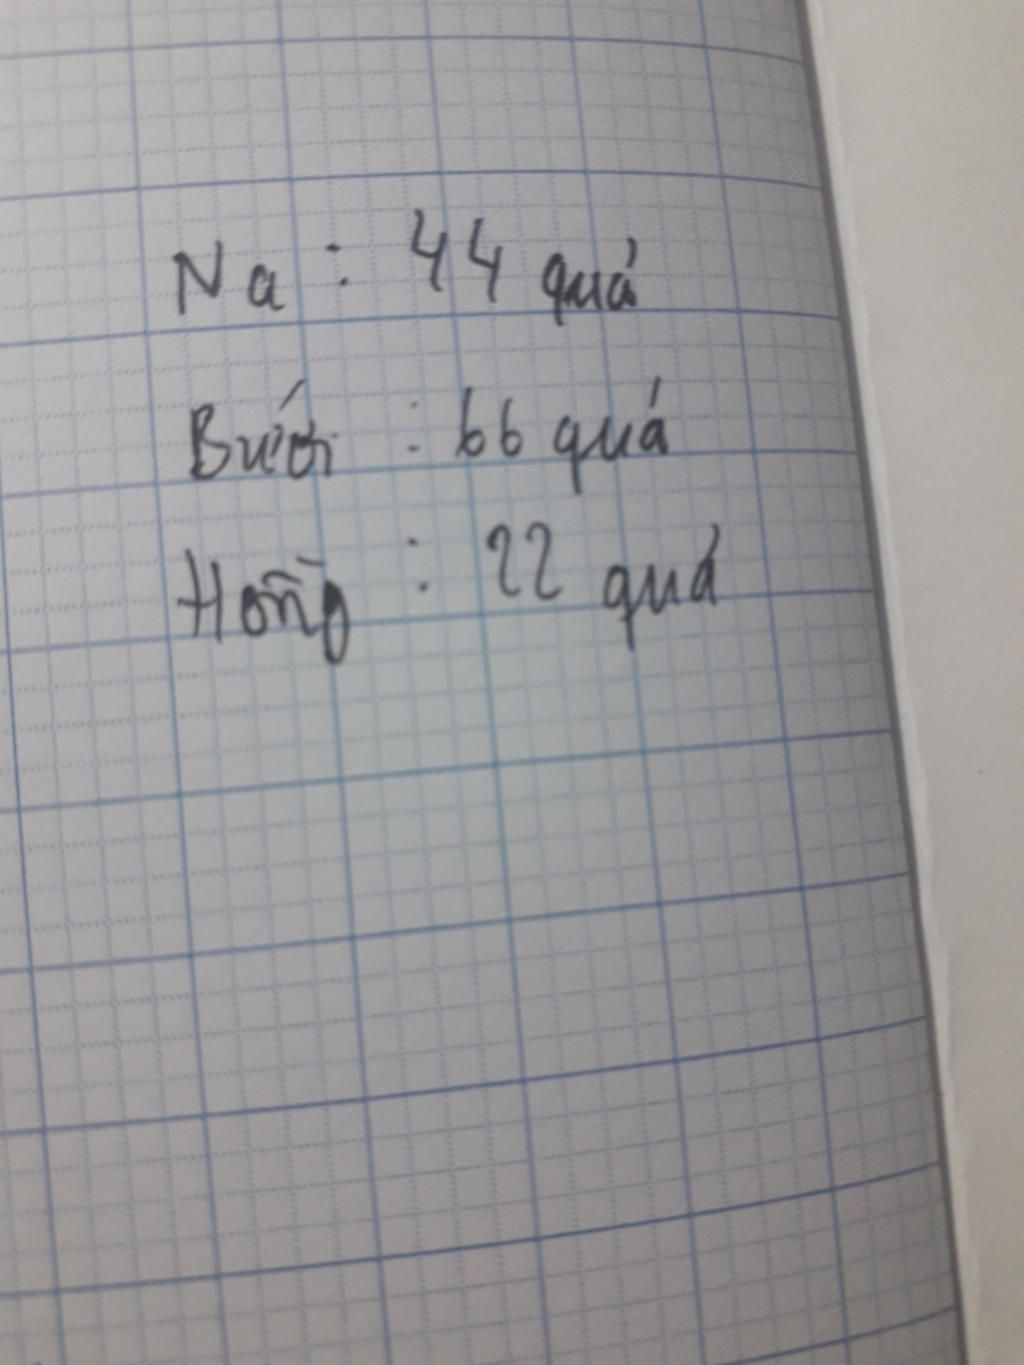 Na : 44 quả
Bưởi : 66 quả
Hồng : 22 quả